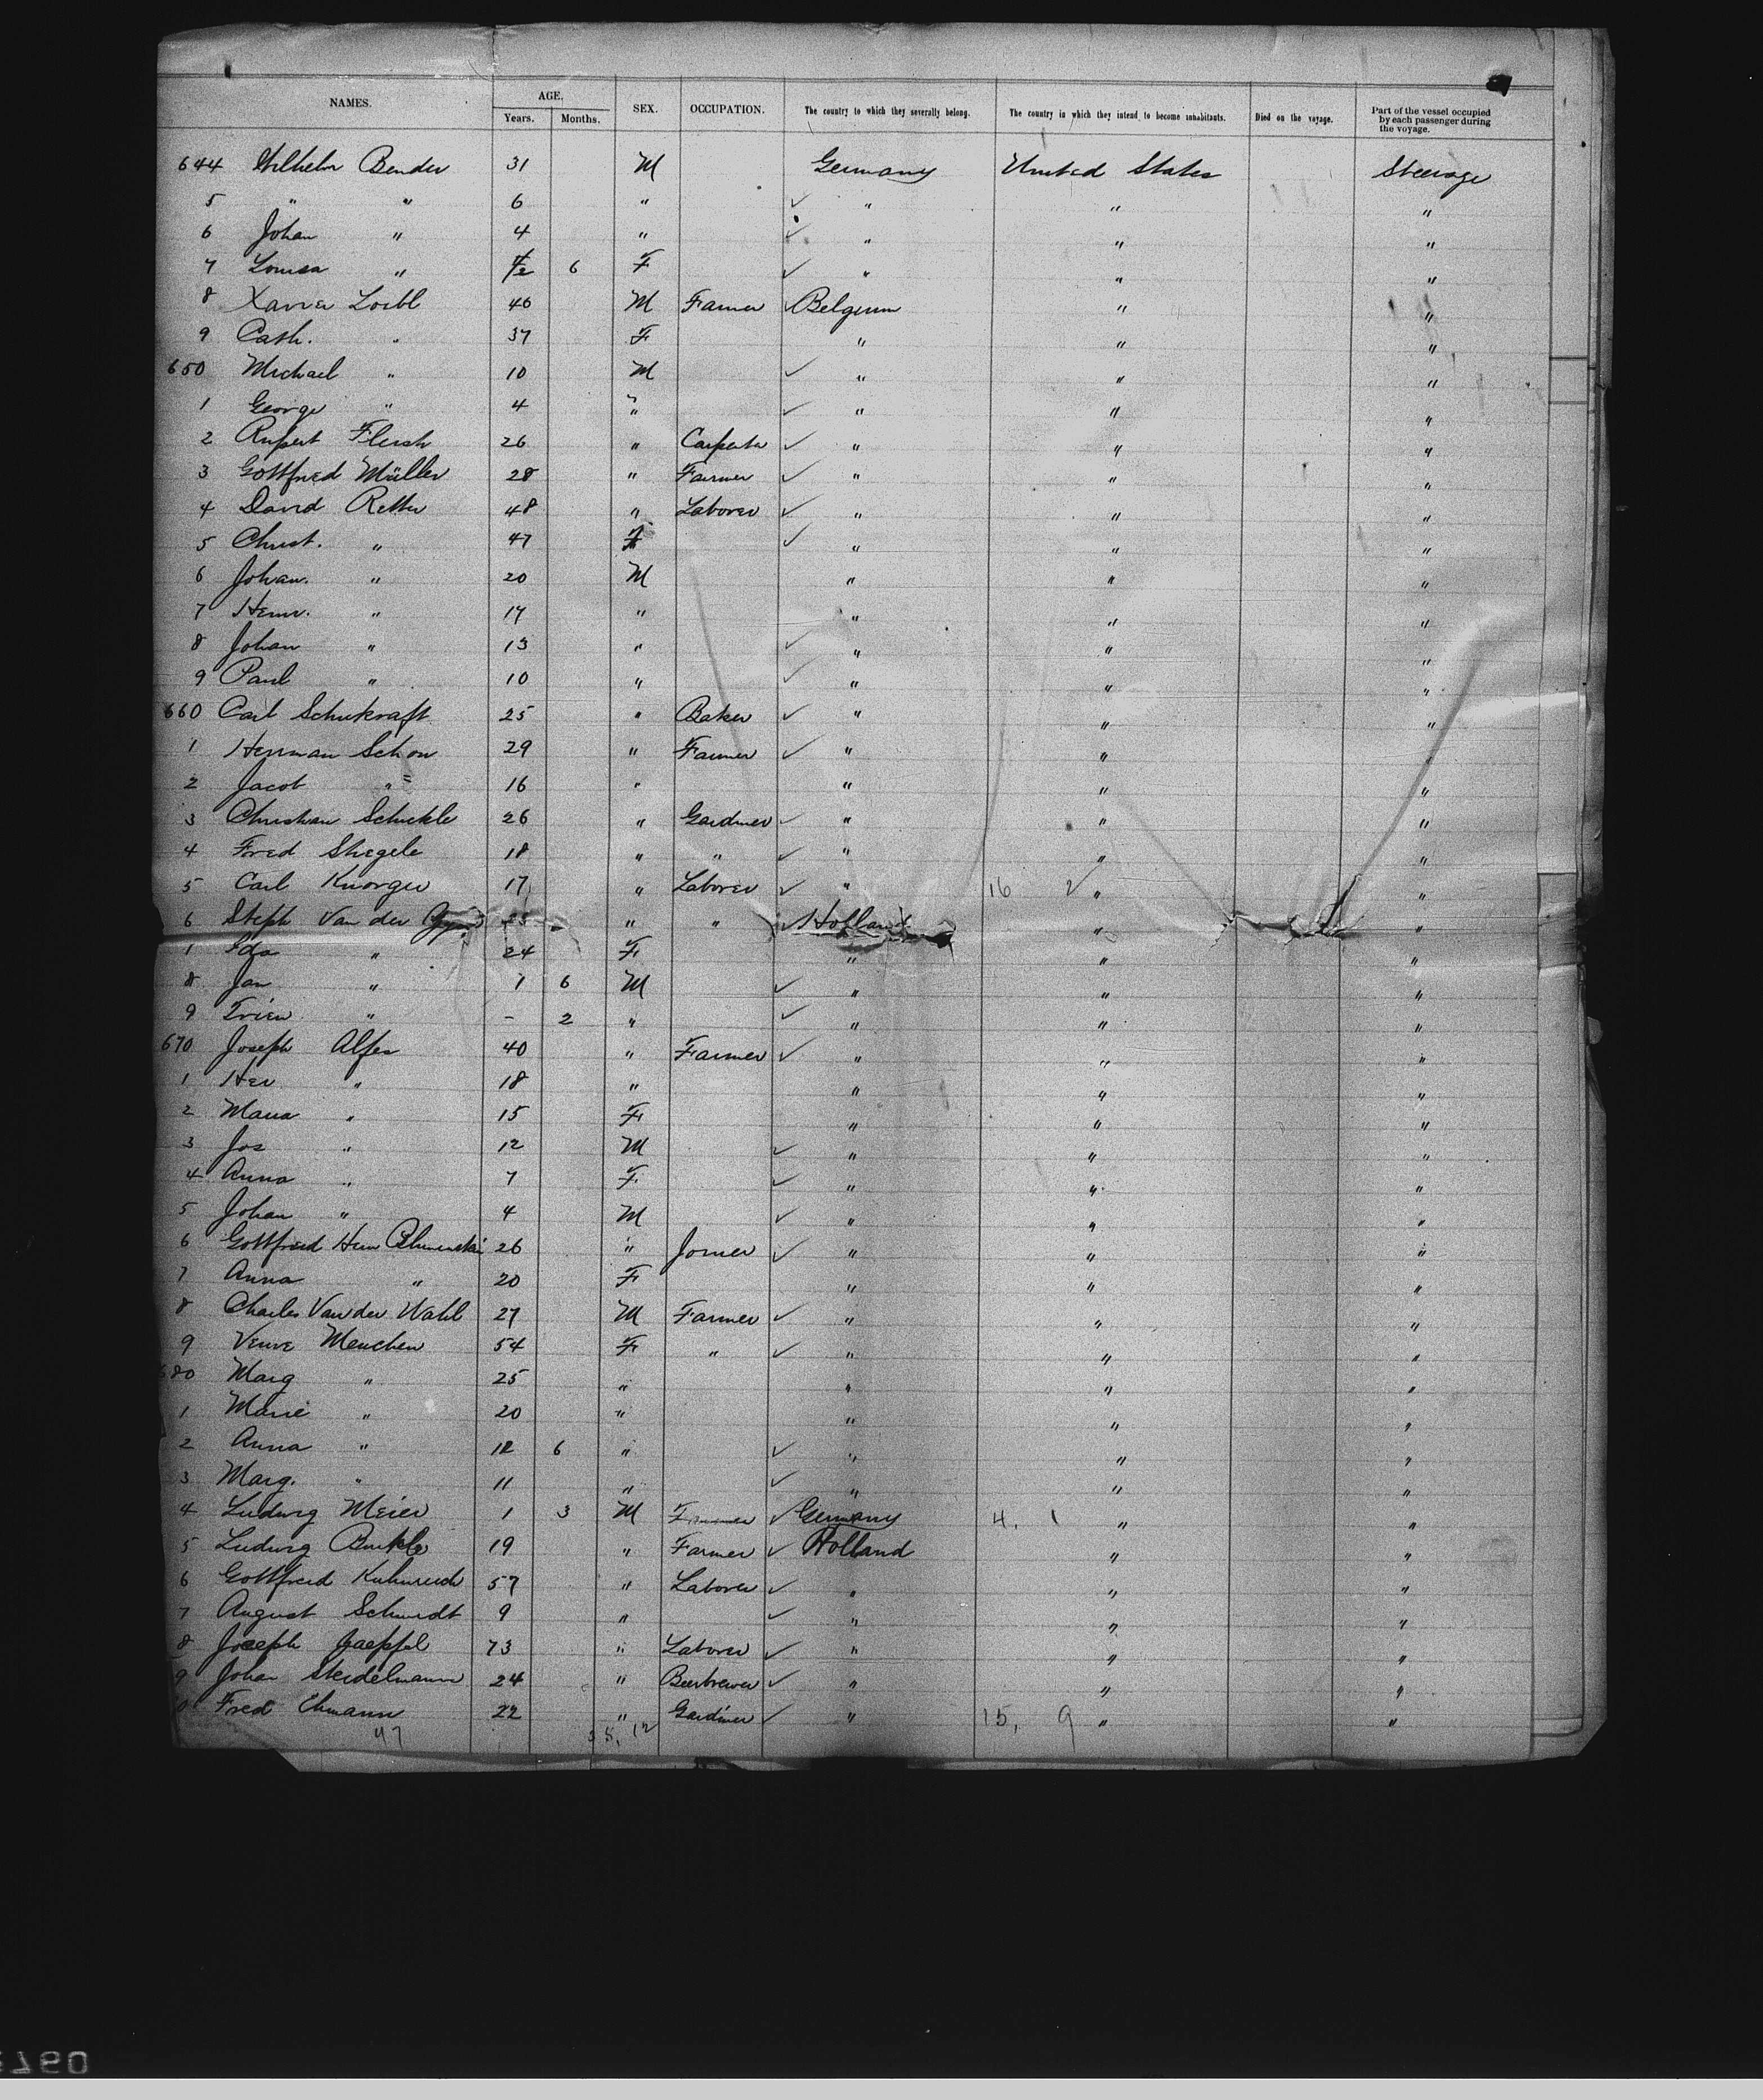 NAMES. AGE. Years. Months. SEX. OCCUPATION. The country to which they severally belong. The country in which they intend to become inhabitants. Died on the voyage. Part of the vessel occupied by each passenger during the voyage.
644 Wilhelm Bender 31 M Germany United States Steerage
5 " " 6 " " " "
6 Johan " 4 " " " "
7 Louisa " 6 F " " "
8 Xavier Loibl 46 M Farmer Belgium " "
9 Cath. " 37 F " " "
650 Michael " 10 M " " "
1 George " 4 " " " "
2 Rupert Flersh 26 " Carpenter " " "
3 Gottfried Müller 28 " Farmer " " "
4 David Retter 48 " Laborer " " "
5 Christ. " 47 F " " "
6 Johan. " 20 M " " "
7 Heinr. " 17 " " " "
8 Johan " 13 " " " "
9 Paul " 10 " " " "
660 Carl Schukraft 25 " Baker " " "
1 Herrman Schon 29 " Farmer " " "
2 Jacob " 16 " " " "
3 Christian Schickle 26 " Gardiner " " "
4 Fred Stregele 18 " " " " "
5 Carl Knorger 17 " Laborer " 16 2 " "
6 Steph Van der 25 " " Holland " "
7 Ida " 24 F " " "
8 Jan " 1 6 M " " "
9 Trien " - 2 " " " "
670 Joseph Alfer 40 " Farmer " " "
1 Her " 18 " " " "
2 Maria " 15 F " " "
3 Jos " 12 M " " "
4 Anna " 7 F " " "
5 Johan " 4 M " " "
6 Gottfried Herm 26 " Joiner " " "
7 Anna " 20 F " " "
8 Charles Van der Wahl 27 M Farmer " " "
9 Veuve Meuchen 54 F " " " "
680 Marg " 25 " " " "
1 Marie " 20 " " " "
2 Anna " 12 6 " " " "
3 Marg. " 11 " " " "
4 Ludwig Meier 1 3 M Farmer Germany 4, 1 " "
5 Ludwig Bunkle 19 " Farmer Holland " "
6 Gottfreid 57 " Laborer " " "
7 August Schmidt 9 " " " "
8 Joseph Gaeppel 73 " Laborer " " "
9 Johan Steidelmann 24 " Beerbrewer " " "
0 Fred Ehmann 22 " Gardiner " 15, 9 " "
47 35, 12